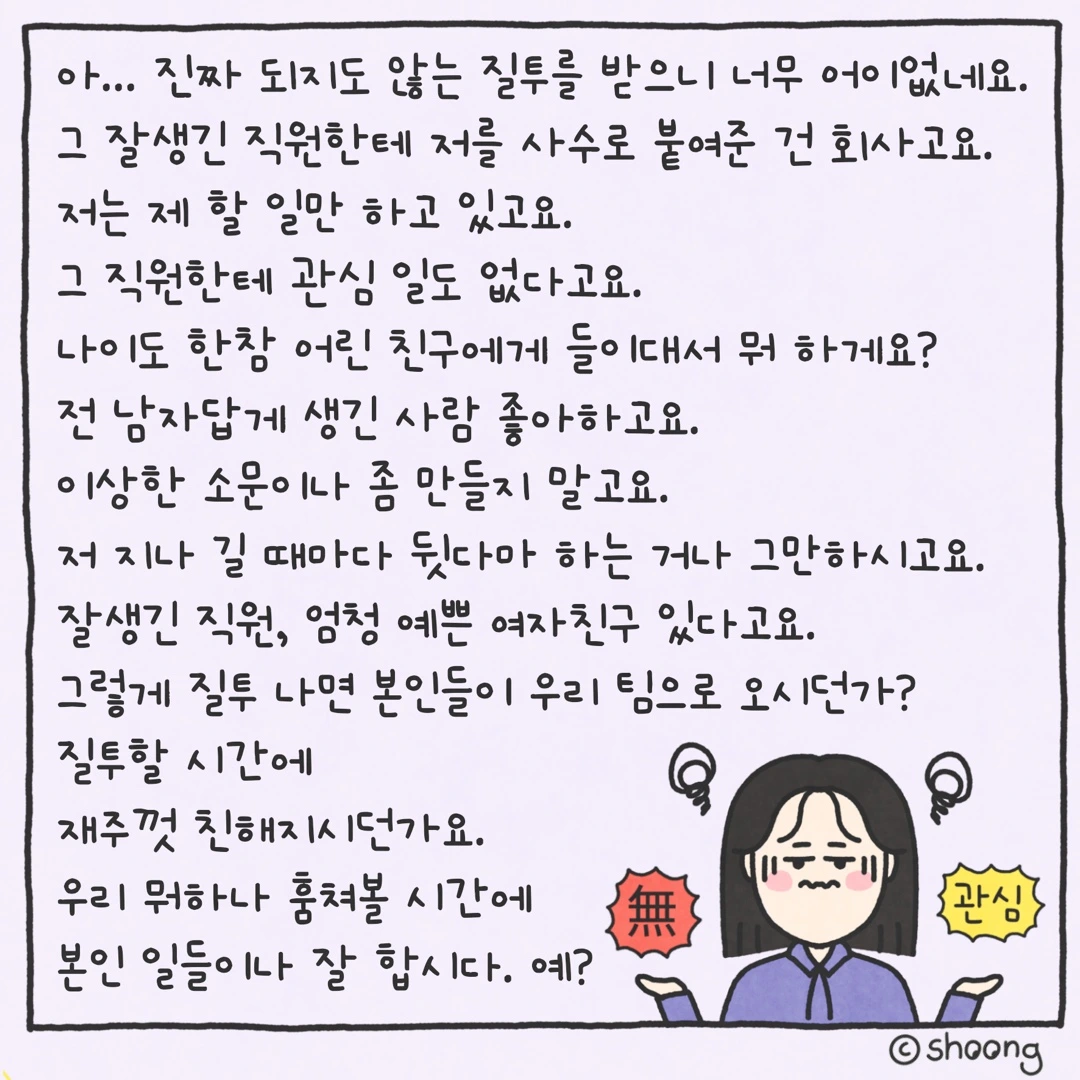 아... 진짜 되지도 않는 질투를 받으니 너무 어이없네요.
그 잘생긴 직원한테 저를 사수로 붙여준 건 회사고요.
저는 제 할 일만 하고 있고요.
그 직원한테 관심 일도 없다고요.
나이도 한참 어린 친구에게 들이대서 뭐 하게요?
전 남자답게 생긴 사람 좋아하고요.
이상한 소문이나 좀 만들지 말고요.
저 지나 길 때마다 뒷다마 하는 거나 그만하시고요.
잘생긴 직원, 엄청 예쁜 여자친구 있다고요.
그렇게 질투 나면 본인들이 우리 팀으로 오시던가?
질투할 시간에
재주껏 친해지시던가요.
우리 뭐하나 훔쳐볼 시간에
본인 일들이나 잘 합시다. 예?
無
관심
©shoong